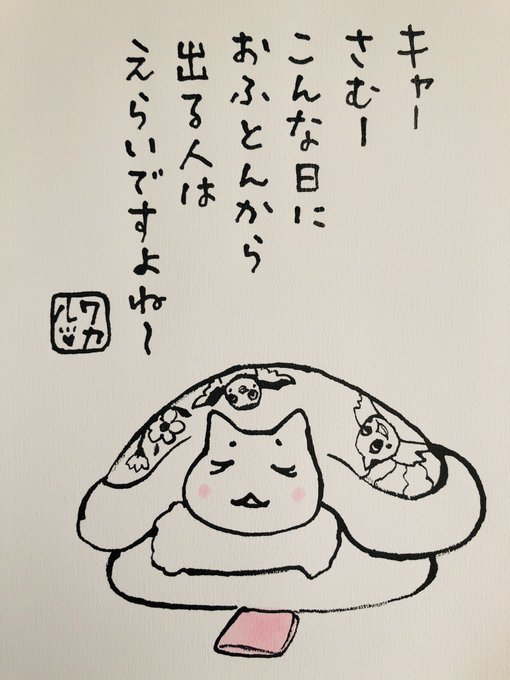 キャー
さむー
こんな日に
おふとんから
出る人は
えらいですよね～
ワカ
ル